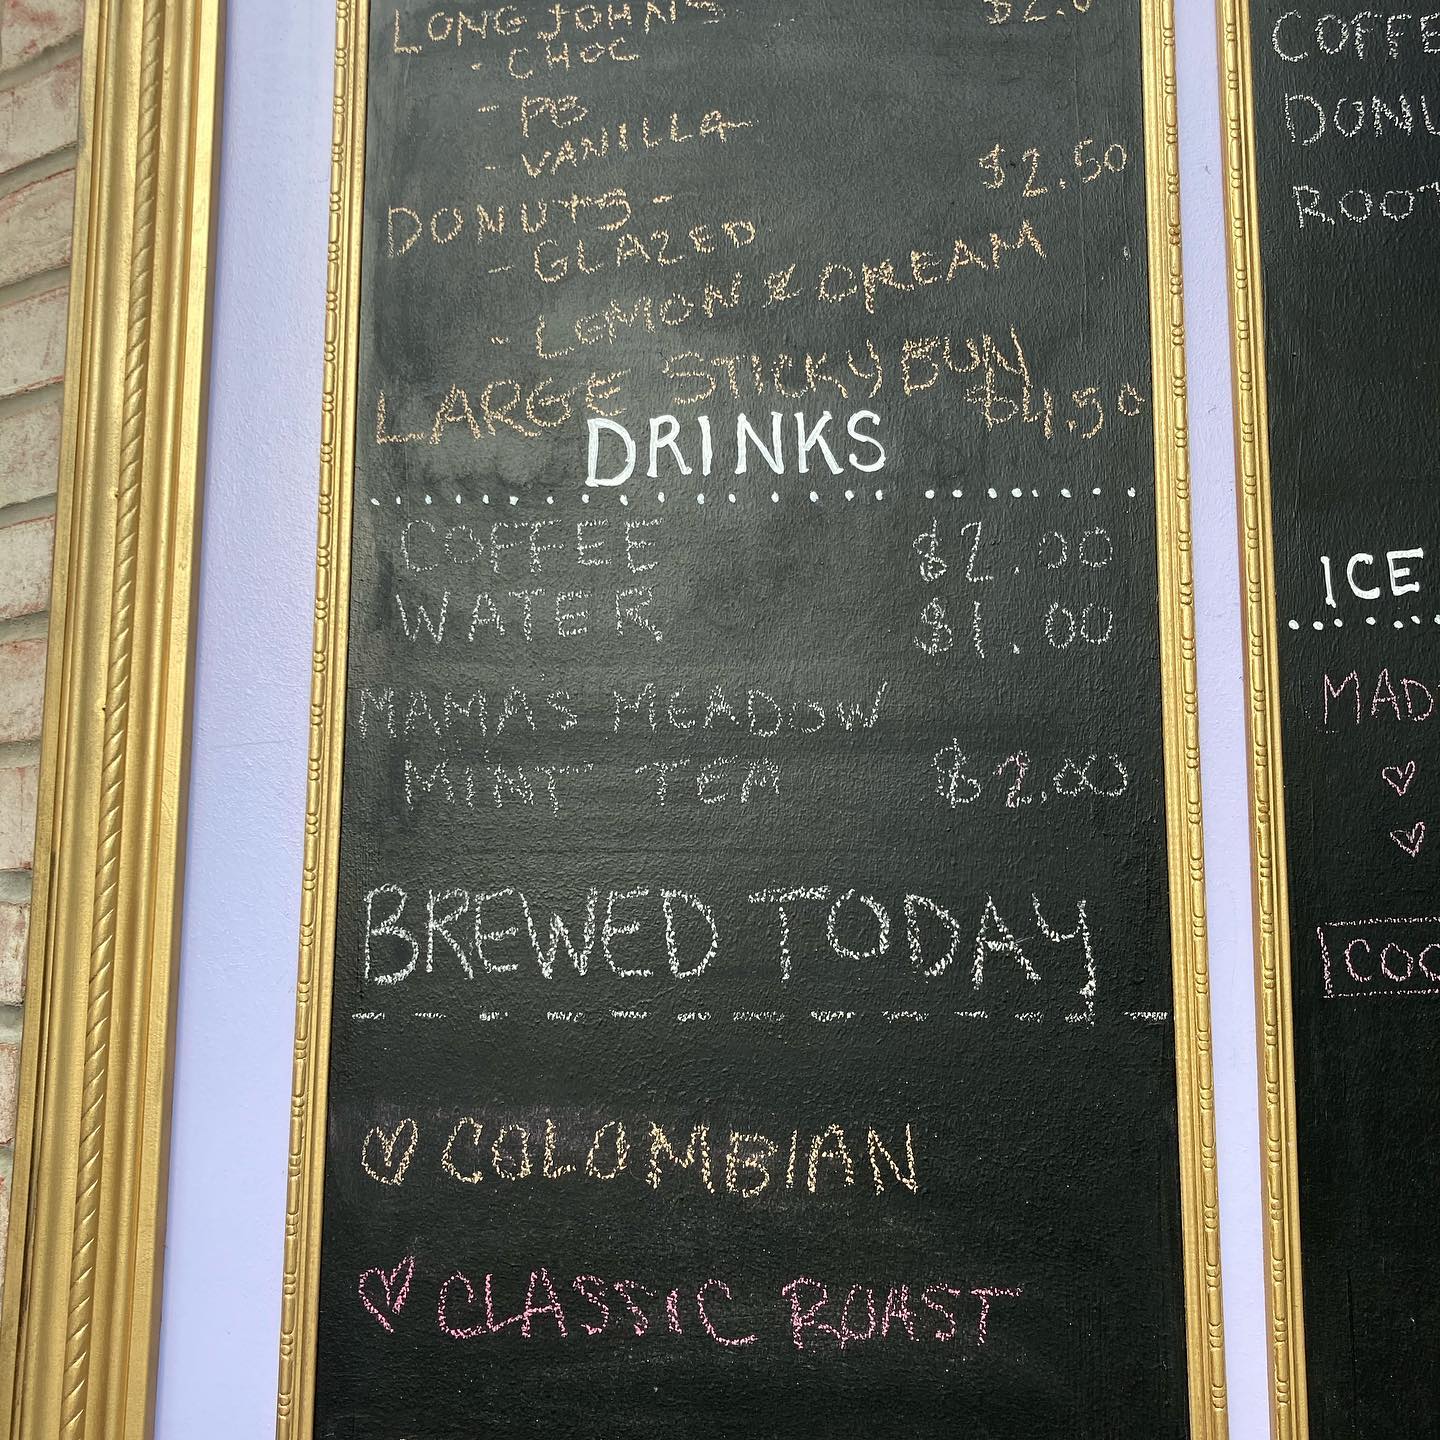 LONG JOHNS $2.0
- CHOC
- PB
- VANILLA
DONUTS - $2.50
- GLAZED
- LEMON & CREAM
LARGE STICKY BUN $4.50
DRINKS
COFFEE $2.00
WATER $1.00
MAMA'S MEADOW
MINT TEA $2.00
BREWED TODAY
COLOMBIAN
CLASSIC ROAST
COFFE
DONU
ROOT
ICE
MAD
COO